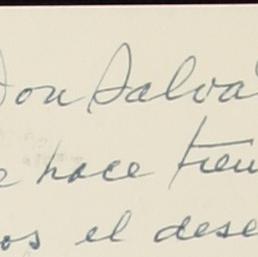 Don Salva
e hace tiem
os el dese